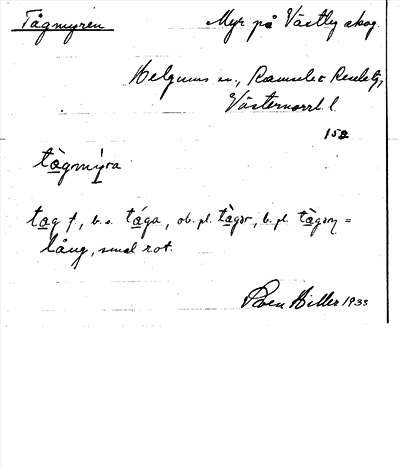 Tågmyren Myr på Västby skog.
Helgums sn., Ramsele Reseleg,
Västernorrl. l.
150
tågmýra
tag f, b. s. tága, ob. pl. tàgər, b. pl. tàgəṇ =
lång, smal rot.
Sven Hiller 1933